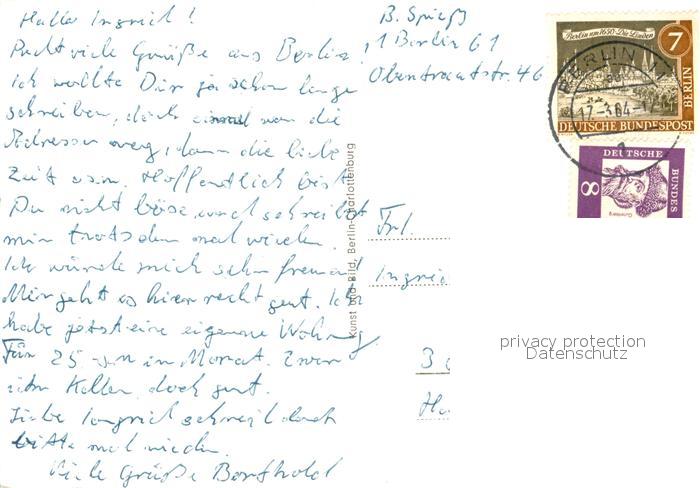 Hallo Ingrid!
Recht viele Grüße aus Berlin!
Ich wollte Dir ja schon lange
schreiben, doch einmal war die
Adresse weg, dann die liebe
Zeit usw. Hoffentlich bist
Du nicht böse und schreibst
mir trotzdem mal wieder.
Ich würde mich sehr freuen!
Mir geht es hier recht gut. Ich
habe jetzt eine eigene Wohnung
Für 25 DM im Monat. Zwar
im Keller, doch gut.
Liebe Ingrid schreib doch
bitte mal wieder.
Viele Grüße Berthold
B. Spieß
1 Berlin 61
Obentrautstr. 46
Berlin um 1650 · Die Linden
7
BERLIN
DEUTSCHE BUNDESPOST
BERLIN
17.-3.64-17
DEUTSCHE
BUNDES
8
Gutenberg
Kunst und Bild, Berlin-Charlottenburg
Frl.
Ingrid
3
Ha
privacy protection
Datenschutz